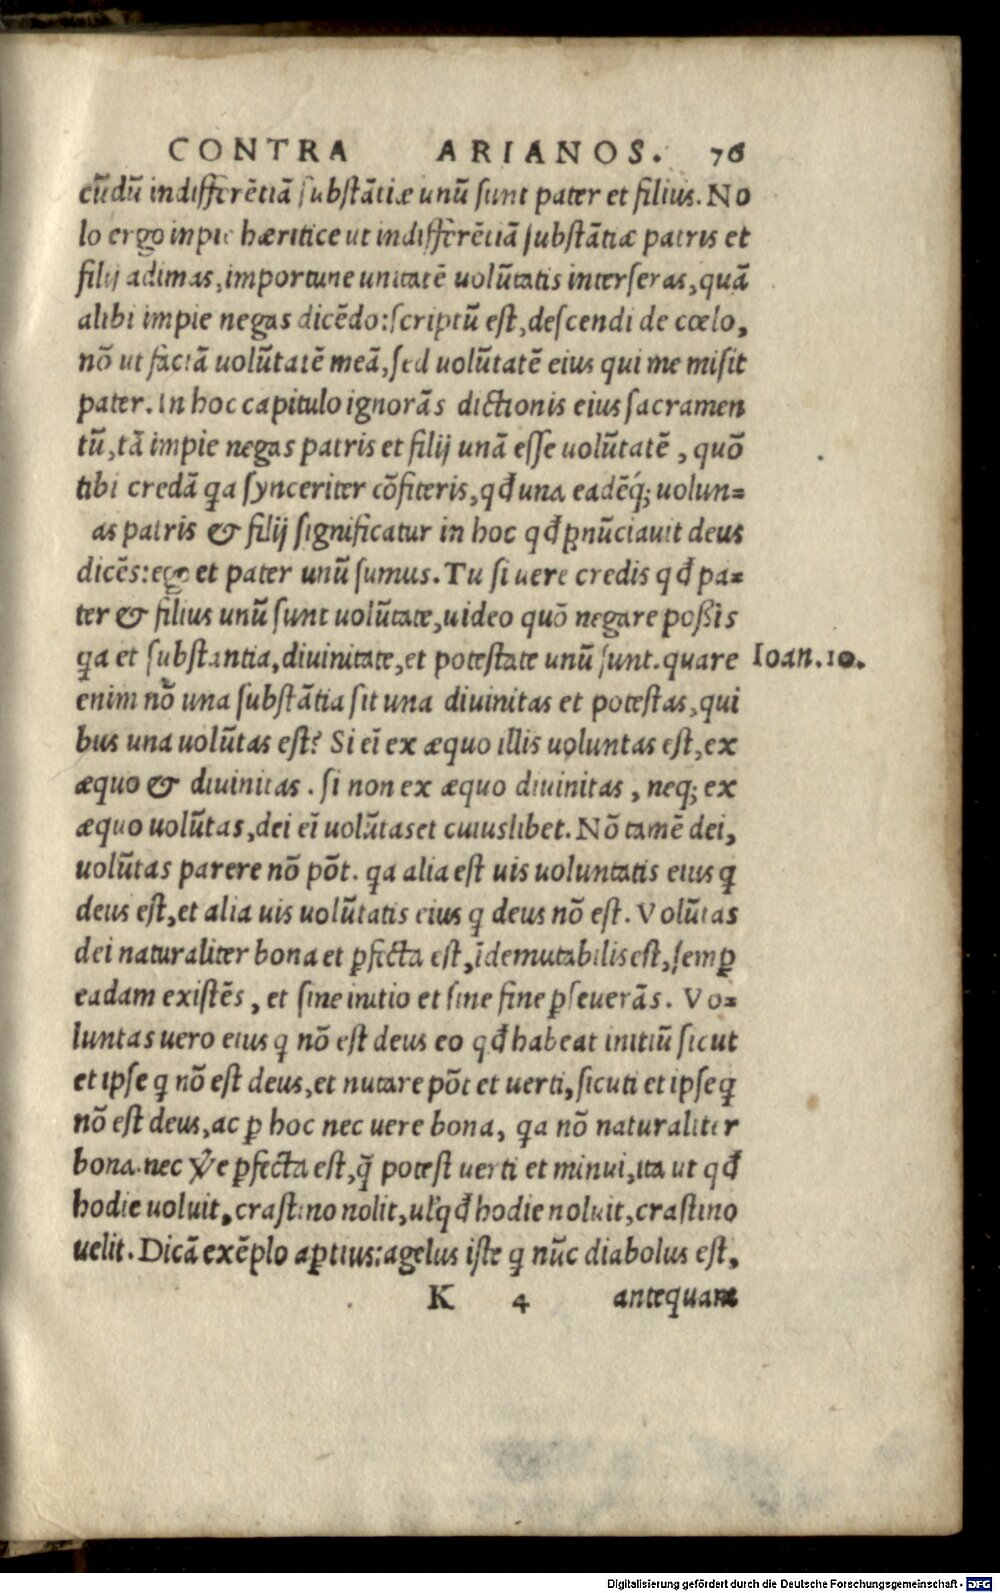 CONTRA ARIANOS. 76
cūdū indifferētiā substātiæ unū sunt pater et filius. No
lo ergo inpie hæritice ut indifferētiā substātiæ patris et
filij adimas, importune unitatē uolūtatis interseras, quā
alibi impie negas dicēdo: scriptū est, descendi de cœlo,
nō ut faciā uolūtatē meā, sed uolūtatē eius qui me misit
pater. In hoc capitulo ignorās dictionis eius sacramen
tū, tā impie negas patris et filij unā esse uolūtatē, quō
tibi credā qa synceriter cōfiteris, qđ una eadēq́; uolun=
as patris & filij significatur in hoc qđ ꝓnūciauit deus
dicēs: ego et pater unū sumus. Tu si uere credis qđ pa=
ter & filius unū sunt uolūtate, uideo quō negare poßis
qa et substantia, diuinitate, et potestate unū sunt. quare Ioan. 10.
enim nō una substātia sit una diuinitas et potestas, qui
bus una uolūtas est? Si eī ex æquo illis uoluntas est, ex
æquo & diuinitas. si non ex æquo diuinitas, neq; ex
æquo uolūtas, dei eī uolūtas et cuiuslibet. Nō tamē dei,
uolūtas parere nō pōt. qa alia est uis uoluntatis eius ꝗ
deus est, et alia uis uolūtatis eius ꝗ deus nō est. Volūtas
dei naturaliter bona et ꝑfecta est, īdemutabilis est, semꝑ
eadam existēs, et sine initio et sine fine ꝑseuerās. Vo=
luntas uero eius ꝗ nō est deus eo qđ habeat initiū sicut
et ipse ꝗ nō est deus, et nutare pōt et uerti, sicuti et ipse ꝗ
nō est deus, ac ꝑ hoc nec uere bona, qa nō naturaliter
bona. nec ꝟe ꝑfecta est, ꝗ̄ potest uerti et minui, ita ut qđ
hodie uoluit, crastino nolit, uł qđ hodie noluit, crastino
uelit. Dicā exēplo aptius: agelus iste ꝗ nūc diabolus est,
K 4 antequam
Digitalisierung gefördert durch die Deutsche Forschungsgemeinschaft - DFG